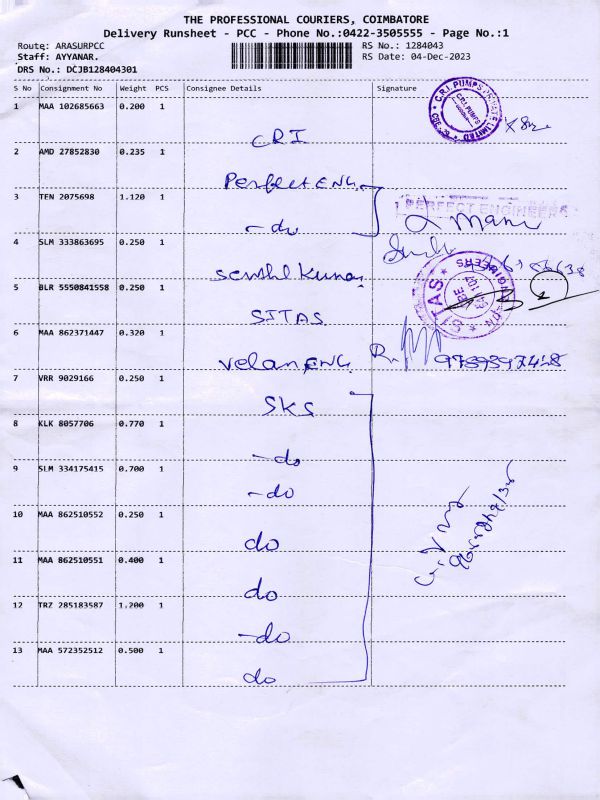 THE PROFESSIONAL COURIERS, COIMBATORE
Delivery Runsheet - PCC - Phone No.:0422-3505555 - Page No.:1
Route: ARASURPCC
RS No.: 1284043
Staff: AYYANAR.
RS Date: 04-Dec-2023
DRS No.: DCJB128404301
S No Consignment No Weight PCS Consignee Details Signature
1 MAA 102685663 0.200 1
CRI
C.R.I. PUMPS PRIVATE LIMITED
2 AMD 27852830 0.235 1
Perfect ENG.
3 TEN 2075698 1.120 1
- do
PERFECT ENGINEERS
Mani
4 SLM 333863695 0.250 1
Senthil Kumar
5 BLR 5550841558 0.250 1
SITAS
SITAS
6 MAA 862371447 0.320 1
Velan ENG.
7 VRR 9029166 0.250 1
SKS
8 KLK 8057706 0.770 1
- do
9 SLM 334175415 0.700 1
- do
10 MAA 862510552 0.250 1
do
11 MAA 862510551 0.400 1
do
12 TRZ 285183587 1.200 1
- do
13 MAA 572352512 0.500 1
do